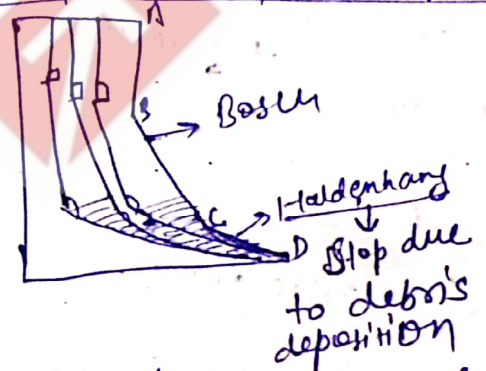 A
B
Boslu
C
Haldenhang
D
Slop due
to debris
deposition